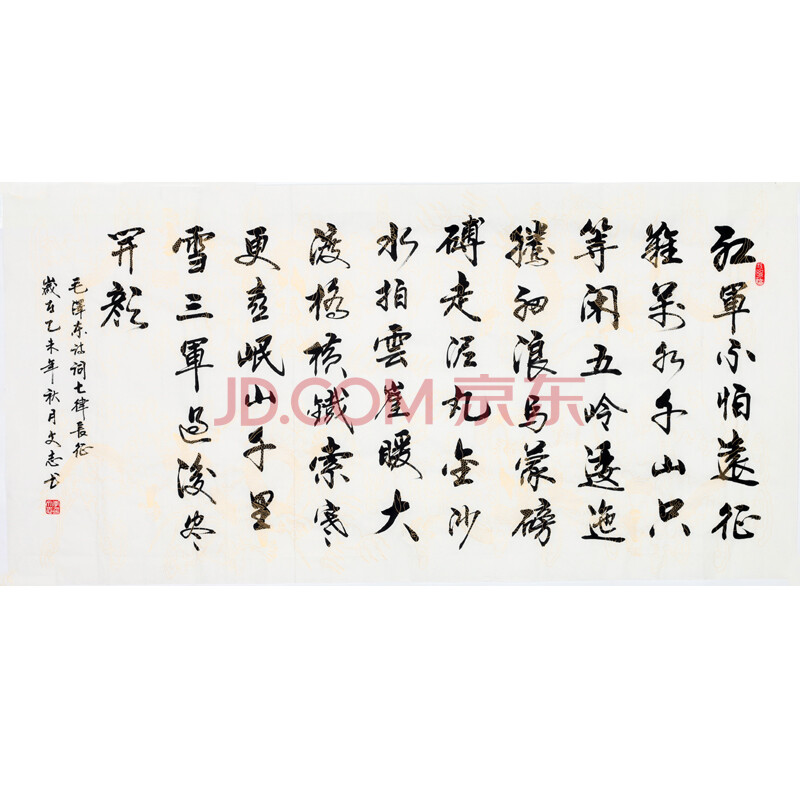 红軍不怕遠征
難萬水千山只
等闲五岭逶迤
騰细浪乌蒙磅
礴走泥丸金沙
水拍雲崖暖大
渡橋横鐵索寒
更喜岷山千里
雪三軍過後尽
開颜
毛澤东诗词七律長征
歲在乙未年秋月文志书
JD.COM 京东